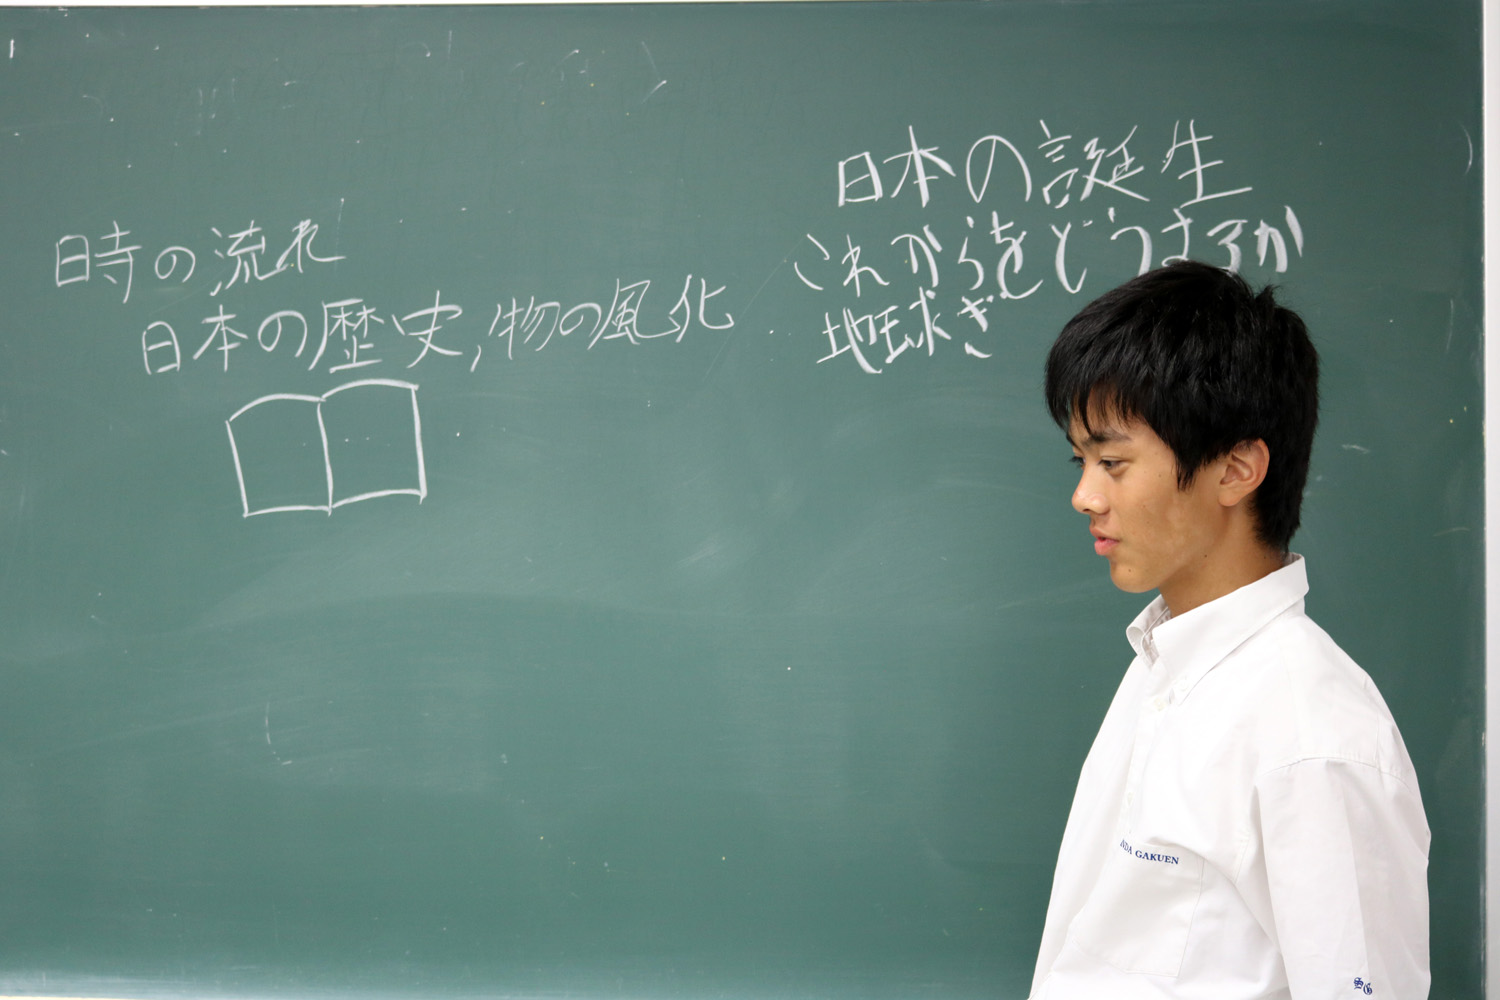 時の流れ
日本の歴史,物の風化
日本の誕生
これからをどうするか
地球ぎ
GAKUEN
SG